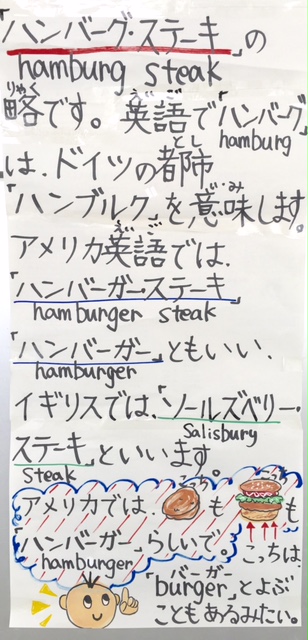 「ハンバーグ・ステーキ」の
hamburg steak
りゃく
略です。英語で「ハンバーグ」
えいご
hamburg
は、ドイツの都市
とし
「ハンブルク」を意味します。
いみ
アメリカ英語では、
えいご
「ハンバーガーステーキ」
hamburger steak
「ハンバーガー」ともいい、
hamburger
イギリスでは、「ソールズベリー・
Salisbury
ステーキ」といいます。
Steak
アメリカでは、こっちも こっちも
「ハンバーガー」らしいで。
hamburger
こっちは、
バーガー
「burger」とよぶ
こともあるみたい。